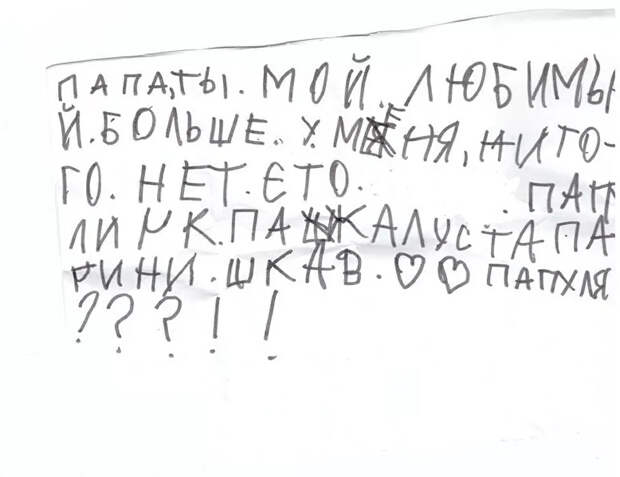 ПАПА,ТЫ. МОЙ. ЛЮБИМЫ
Й. БОЛЬШЕ. У. МЕНЯ, НИГО-
ГО. НЕТ. ЄТО. . ПАП
ЛИЧК. ПАЖАЛУСТА ПА
РИНИ. ШКАВ. ♡♡ ПАПУЛЯ
???!!